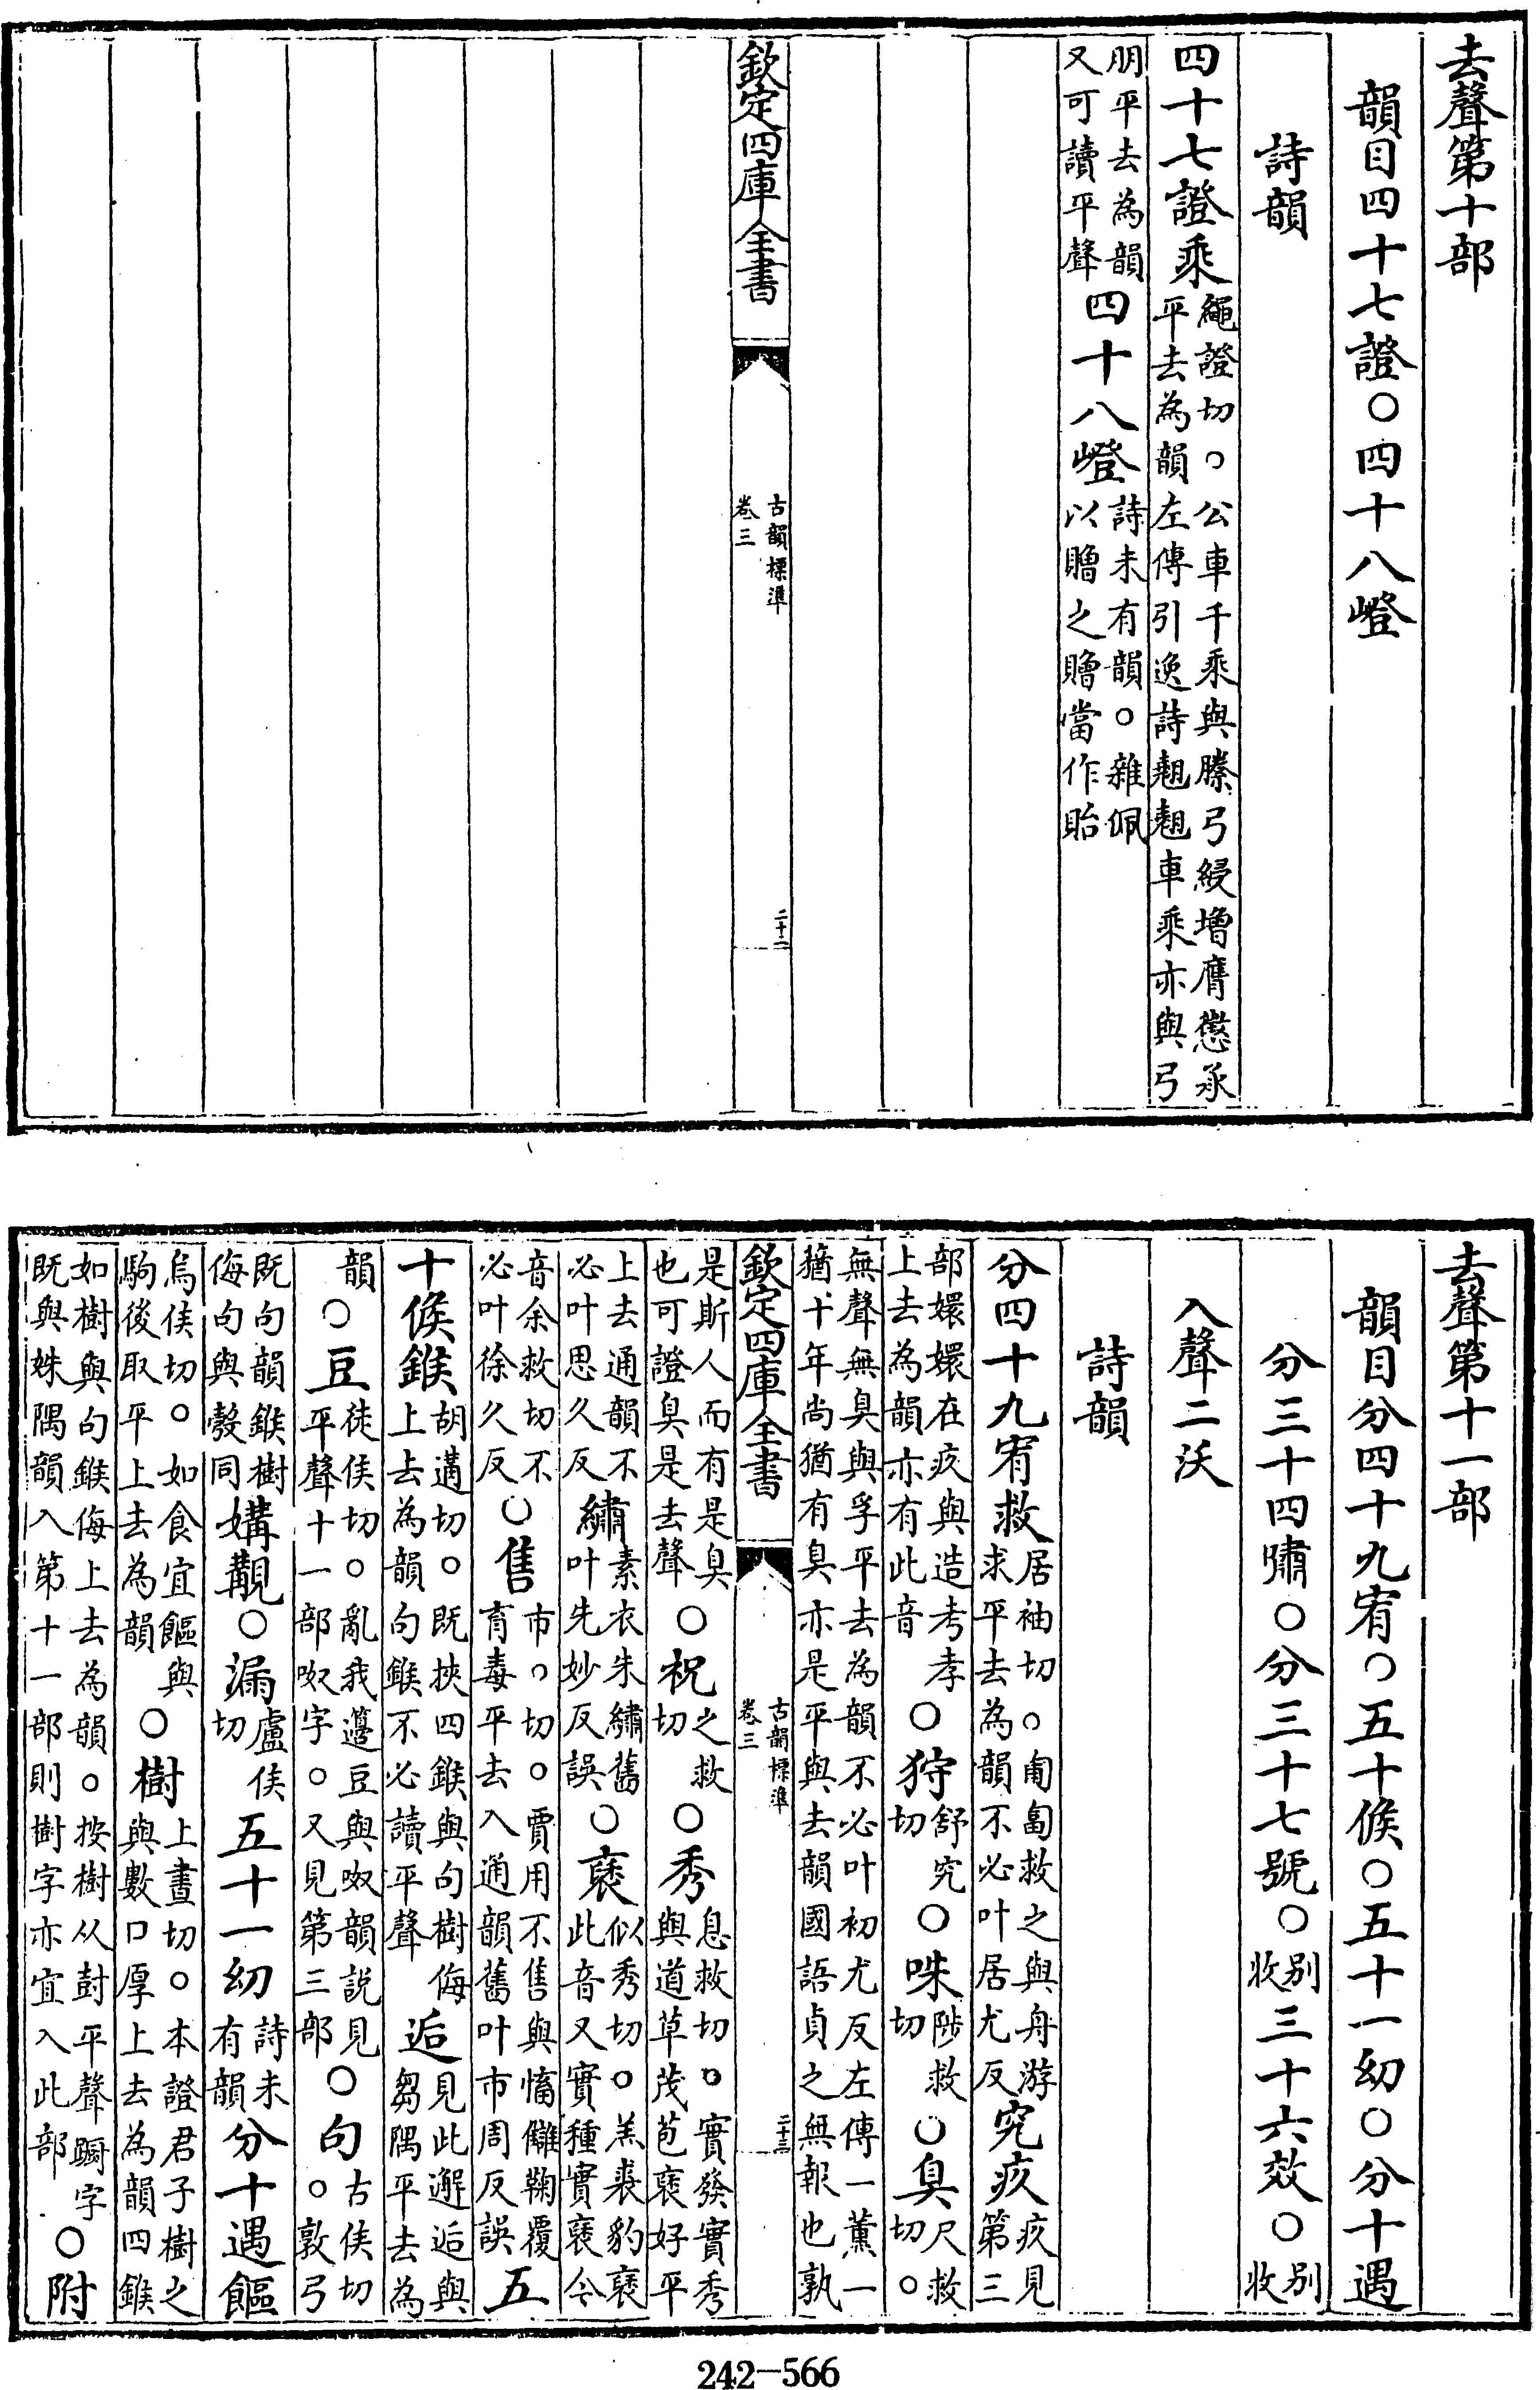 去聲第十部
韻目四十七證○四十八嶝
詩韻
四十七證乘繩證切○公車千乘與縢弓綅增膺懲承
平去為韻左傳引逸詩翹翹車乘亦與弓
朋平去為韻
又可讀平聲四十八嶝詩未有韻○雜佩
以贈之贈當作貽
欽定四庫全書
古韻標準
卷三
二十二
去聲第十一部
韻目分四十九宥○五十候○五十一幼○分十遇
分三十四嘯○分三十七號○別收三十六效○別收
入聲二沃
詩韻
分四十九宥救居袖切○匍匐救之與舟游
求平去為韻不必叶居尤反究疚疚見
第三
部嬛嬛在疚與造考孝
上去為韻亦有此音○狩舒究
切○咮陟救
切○臭尺救
切○
無聲無臭與孚平去為韻不必叶初尤反左傳一薰一
蕕十年尚猶有臭亦是平與去韻國語貞之無報也孰
欽定四庫全書
古韻標準
卷三
二十三
是斯人而有是臭
也可證臭是去聲○祝之救
切○秀息救切○實發實秀
與道草茂苞褎好平
上去通韻不
必叶思久反繡素衣朱繡舊
叶先妙反誤○褎似秀切○羔裘豹褎
此音又實種實褎今
音余救切不
必叶徐久反○售市○切○賈用不售與慉讎鞠覆
育毒平去入通韻舊叶市周反誤五
十候鍭胡遘切○既挾四鍭與句樹侮
上去為韻句鍭不必讀平聲逅見此邂逅與
芻隅平去為
韻○豆徒侯切○亂我籩豆與呶韻說見
平聲十一部呶字○又見第三部○句古侯切
○敦弓
既句韻鍭樹
侮句與彀同媾觏○漏盧侯
切五十一幼詩未
有韻分十遇饇
烏侯切○如食宜饇與
駒後取平上去為韻○樹上晝切○本證君子樹之
與數口厚上去為韻四鍭
如樹與句鍭侮上去為韻○按樹从尌平聲蹰字
既與姝隅韻入第十一部則樹字亦宜入此部○附
242-566